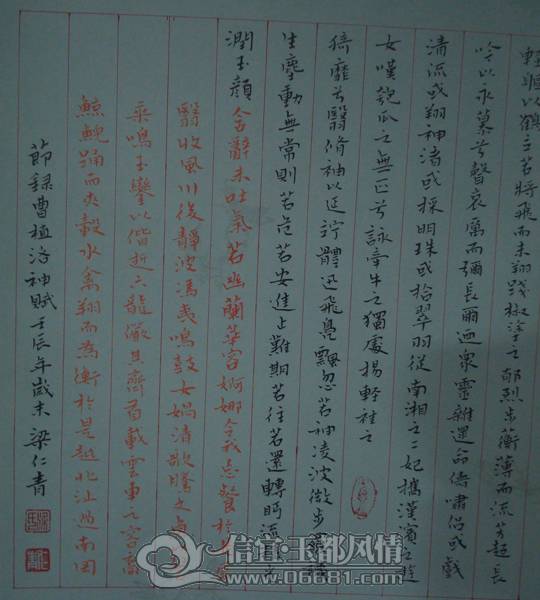 輕軀以鶴立若將飛而未翔踐椒塗之郁烈步蘅薄而流芳超長
吟以永慕兮聲哀厲而彌長爾迺眾靈雜遝命儔嘯侶或戲
清流或翔神渚或採明珠或拾翠羽從南湘之二妃攜漢濱之遊
女嘆匏瓜之無匹兮詠牽牛之獨處揚輕袿之
猗靡兮翳修袖以延佇體迅飛鳧飄忽若神凌波微步
生塵動無常則若危若安進止難期若往若還轉眄流
潤玉顏含辭未吐氣若幽蘭華容婀娜令我忘餐於
翳收風川後靜波馮夷鳴鼓女媧清歌騰文
乘鳴玉鑾以偕逝六龍儼其齊首載雲車之容裔
鯨鯢踊而夾轂水禽翔而為衛於是越北沚過南岡
節錄曹植洛神賦壬辰年歲末梁仁青
信宜·玉都风情
www.06681.com